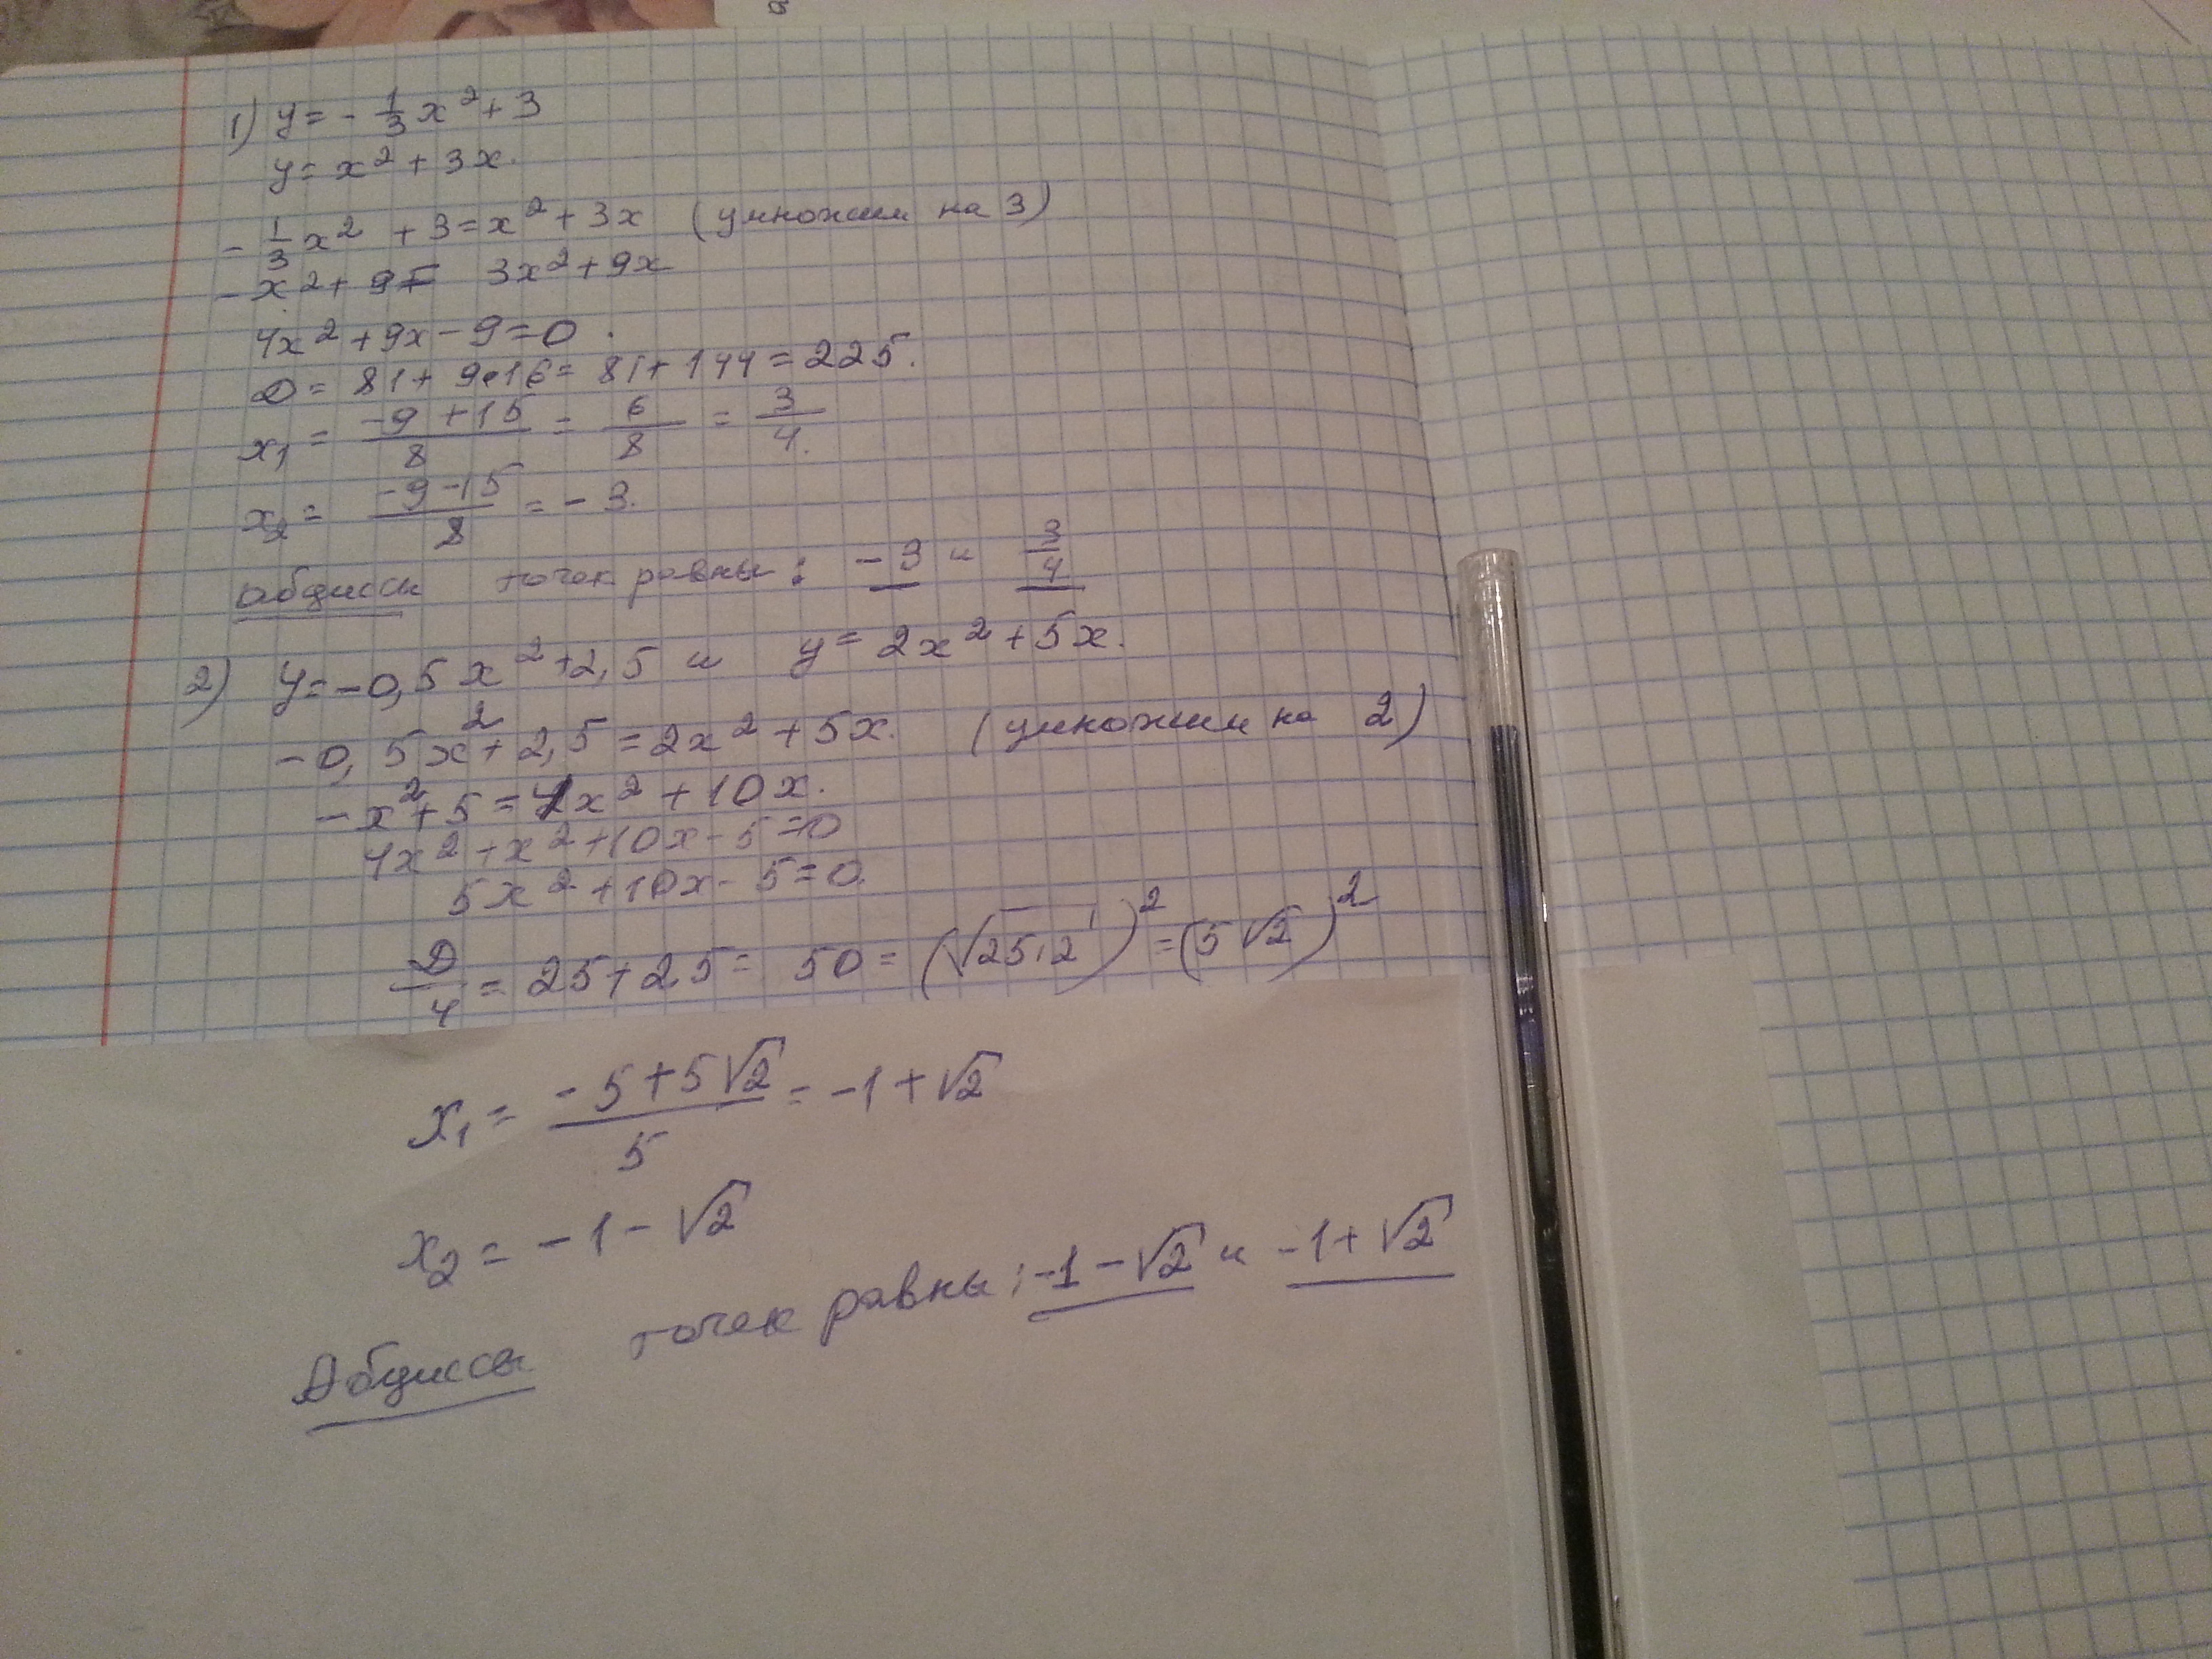 1) y = - 1/3 x² + 3
y = x² + 3x.
- 1/3 x² + 3 = x² + 3x (умножим на 3)
- x² + 9 = 3x² + 9x
4x² + 9x - 9 = 0.
D = 81 + 9•16 = 81 + 144 = 225.
x₁ = (-9 + 15)/8 = 6/8 = 3/4.
x₂ = (-9 - 15)/8 = - 3.
абциссы точек равны: -3 и 3/4
2) y = -0,5x² + 2,5 и y = 2x² + 5x.
-0,5x² + 2,5 = 2x² + 5x. (умножим на 2)
- x² + 5 = 4x² + 10x.
4x² + x² + 10x - 5 = 0
5x² + 10x - 5 = 0.
D/4 = 25 + 25 = 50 = (√25·2)² = (5√2)²
x₁ = (-5 + 5√2)/5 = -1 + √2
x₂ = -1 - √2
Абциссы точек равны: -1 - √2 и -1 + √2